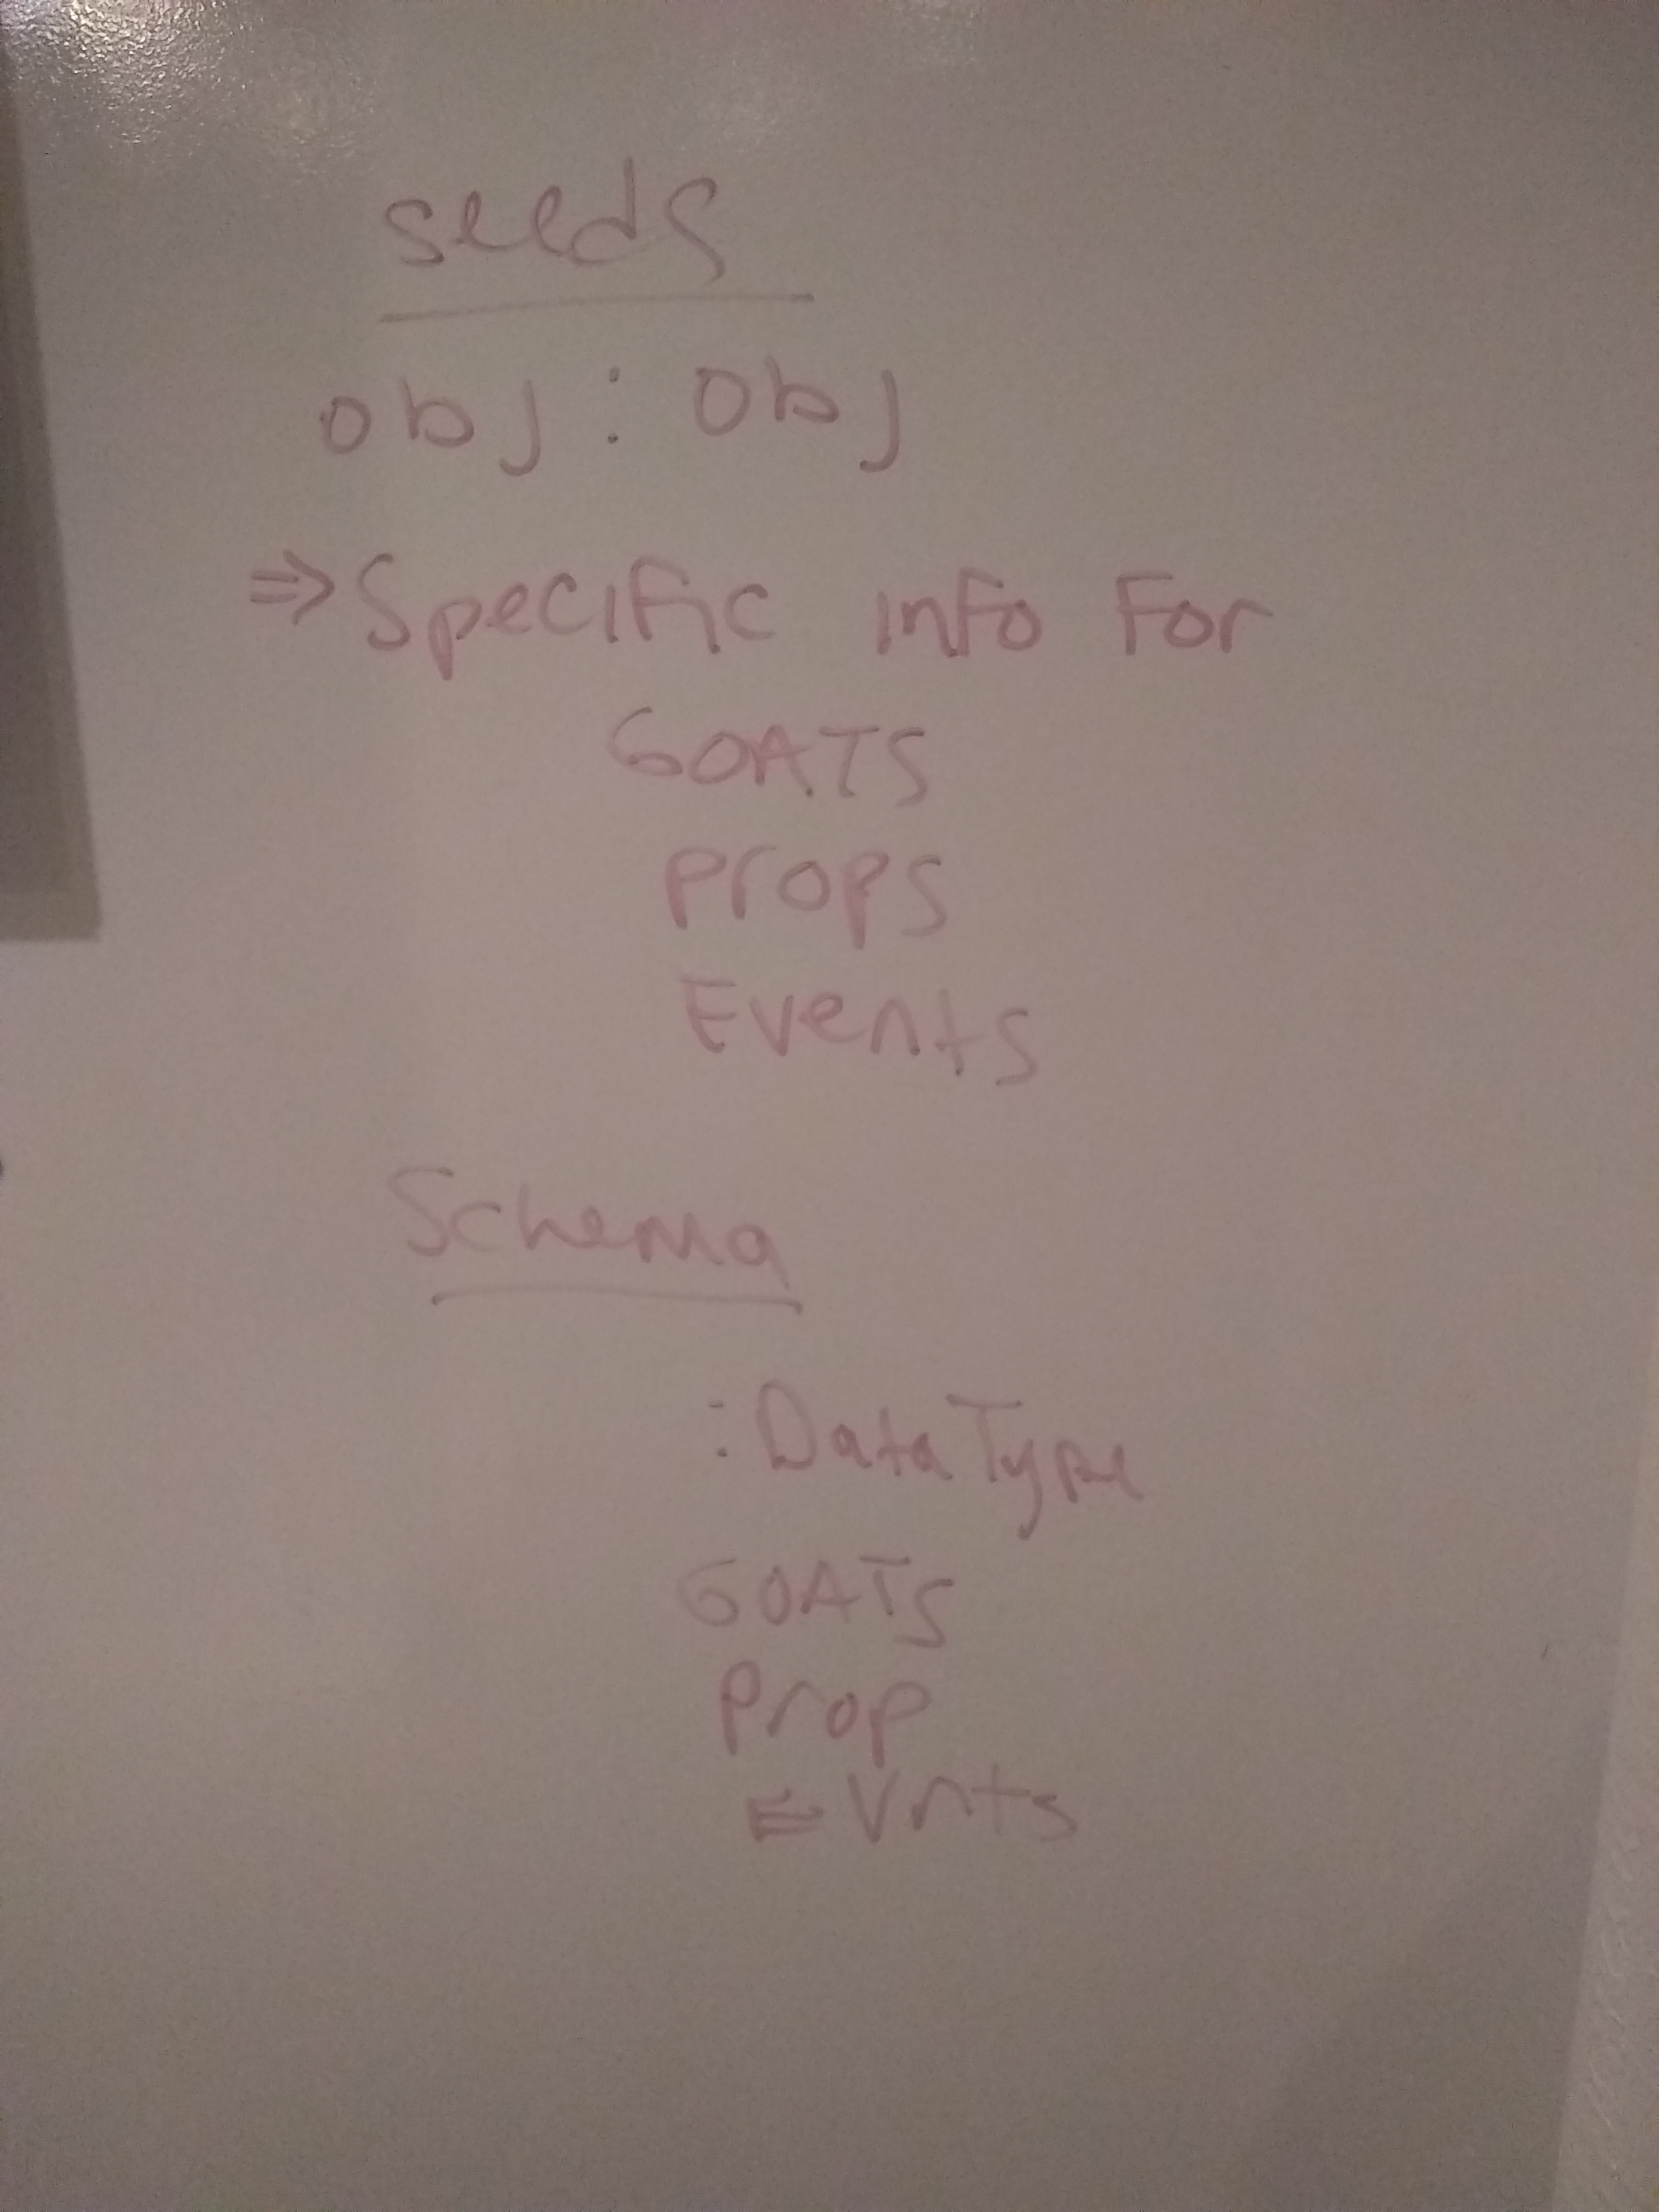 seeds
obj : obj
⇒ Specific info For
GOATS
Props
Events
Schema
: DataType
GOATS
Prop
EVnts